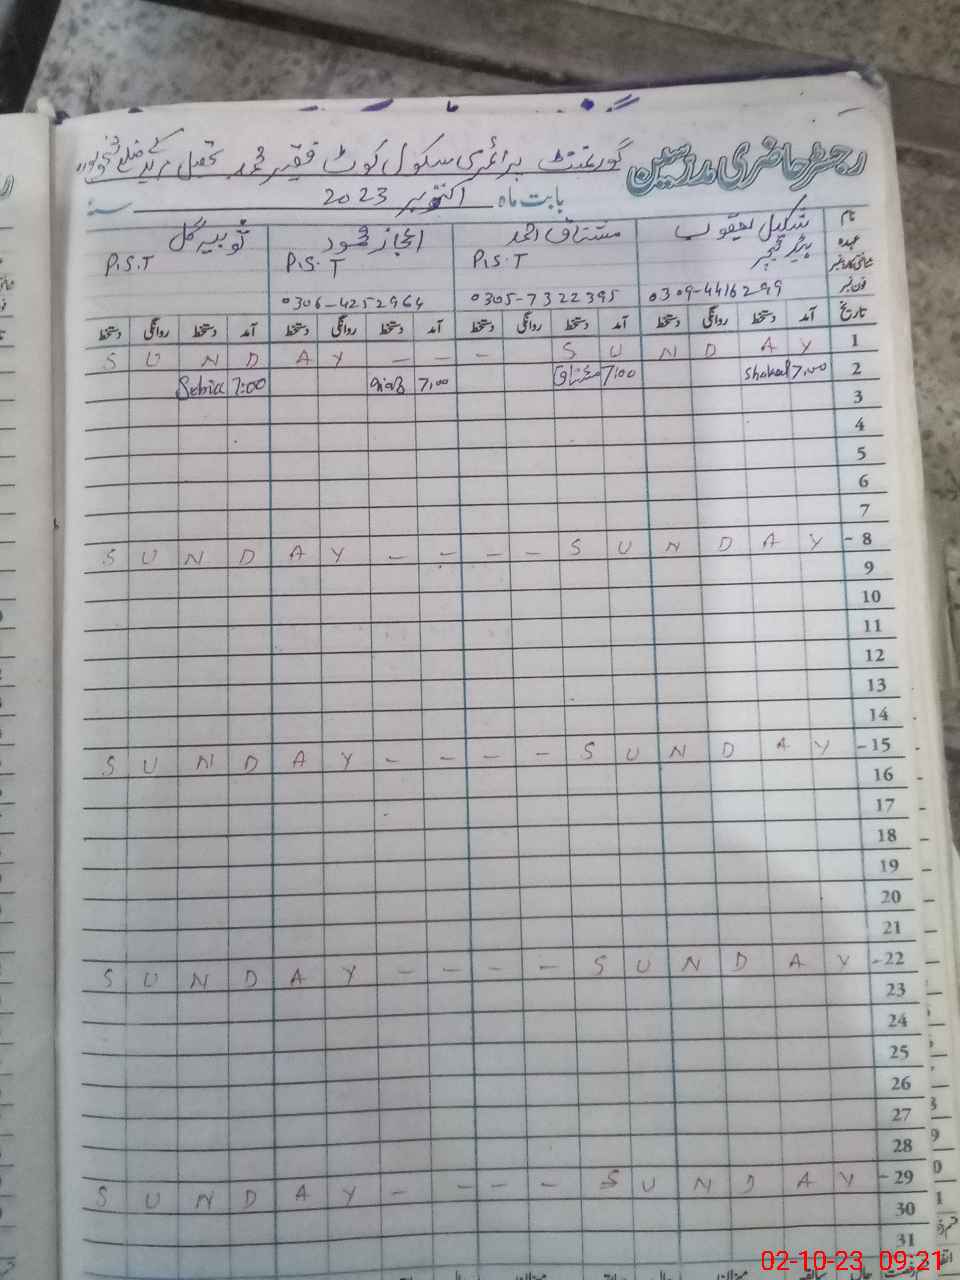 رجسٹر حاضری مدرسین گورنمنٹ پرائمری سکول کوٹ فقیر محمد تحصیل مریدکے ضلع شیخوپورہ
بابت ماہ اکتوبر 2023 سنہ
نام شکیل یعقوب مشتاق احمد اعجاز محمود ثوبیہ گل
عہدہ ہیڈ ٹیچر P.S.T P.S.T P.S.T
شناختی کارڈ نمبر
فون نمبر 0309-4416299 0305-7322395 0306-4252964
تاریخ آمد دستخط روانگی دستخط آمد دستخط روانگی دستخط آمد دستخط روانگی دستخط آمد دستخط روانگی دستخط
S U N D A Y - - - S U N D A Y 1
Sobia 7:00 7:00 مشتاق 7:00 Shakeel 7:00 2
3
4
5
6
7
S U N D A Y - - - - S U N D A Y - 8
9
10
11
12
13
14
S U N D A Y - - - - S U N D A Y - 15
16
17
18
19
20
21
S U N D A Y - - - - S U N D A Y - 22
23
24
25
26
27
28
S U N D A Y - - - - S U N D A Y - 29
30
31
02-10-23 09:21